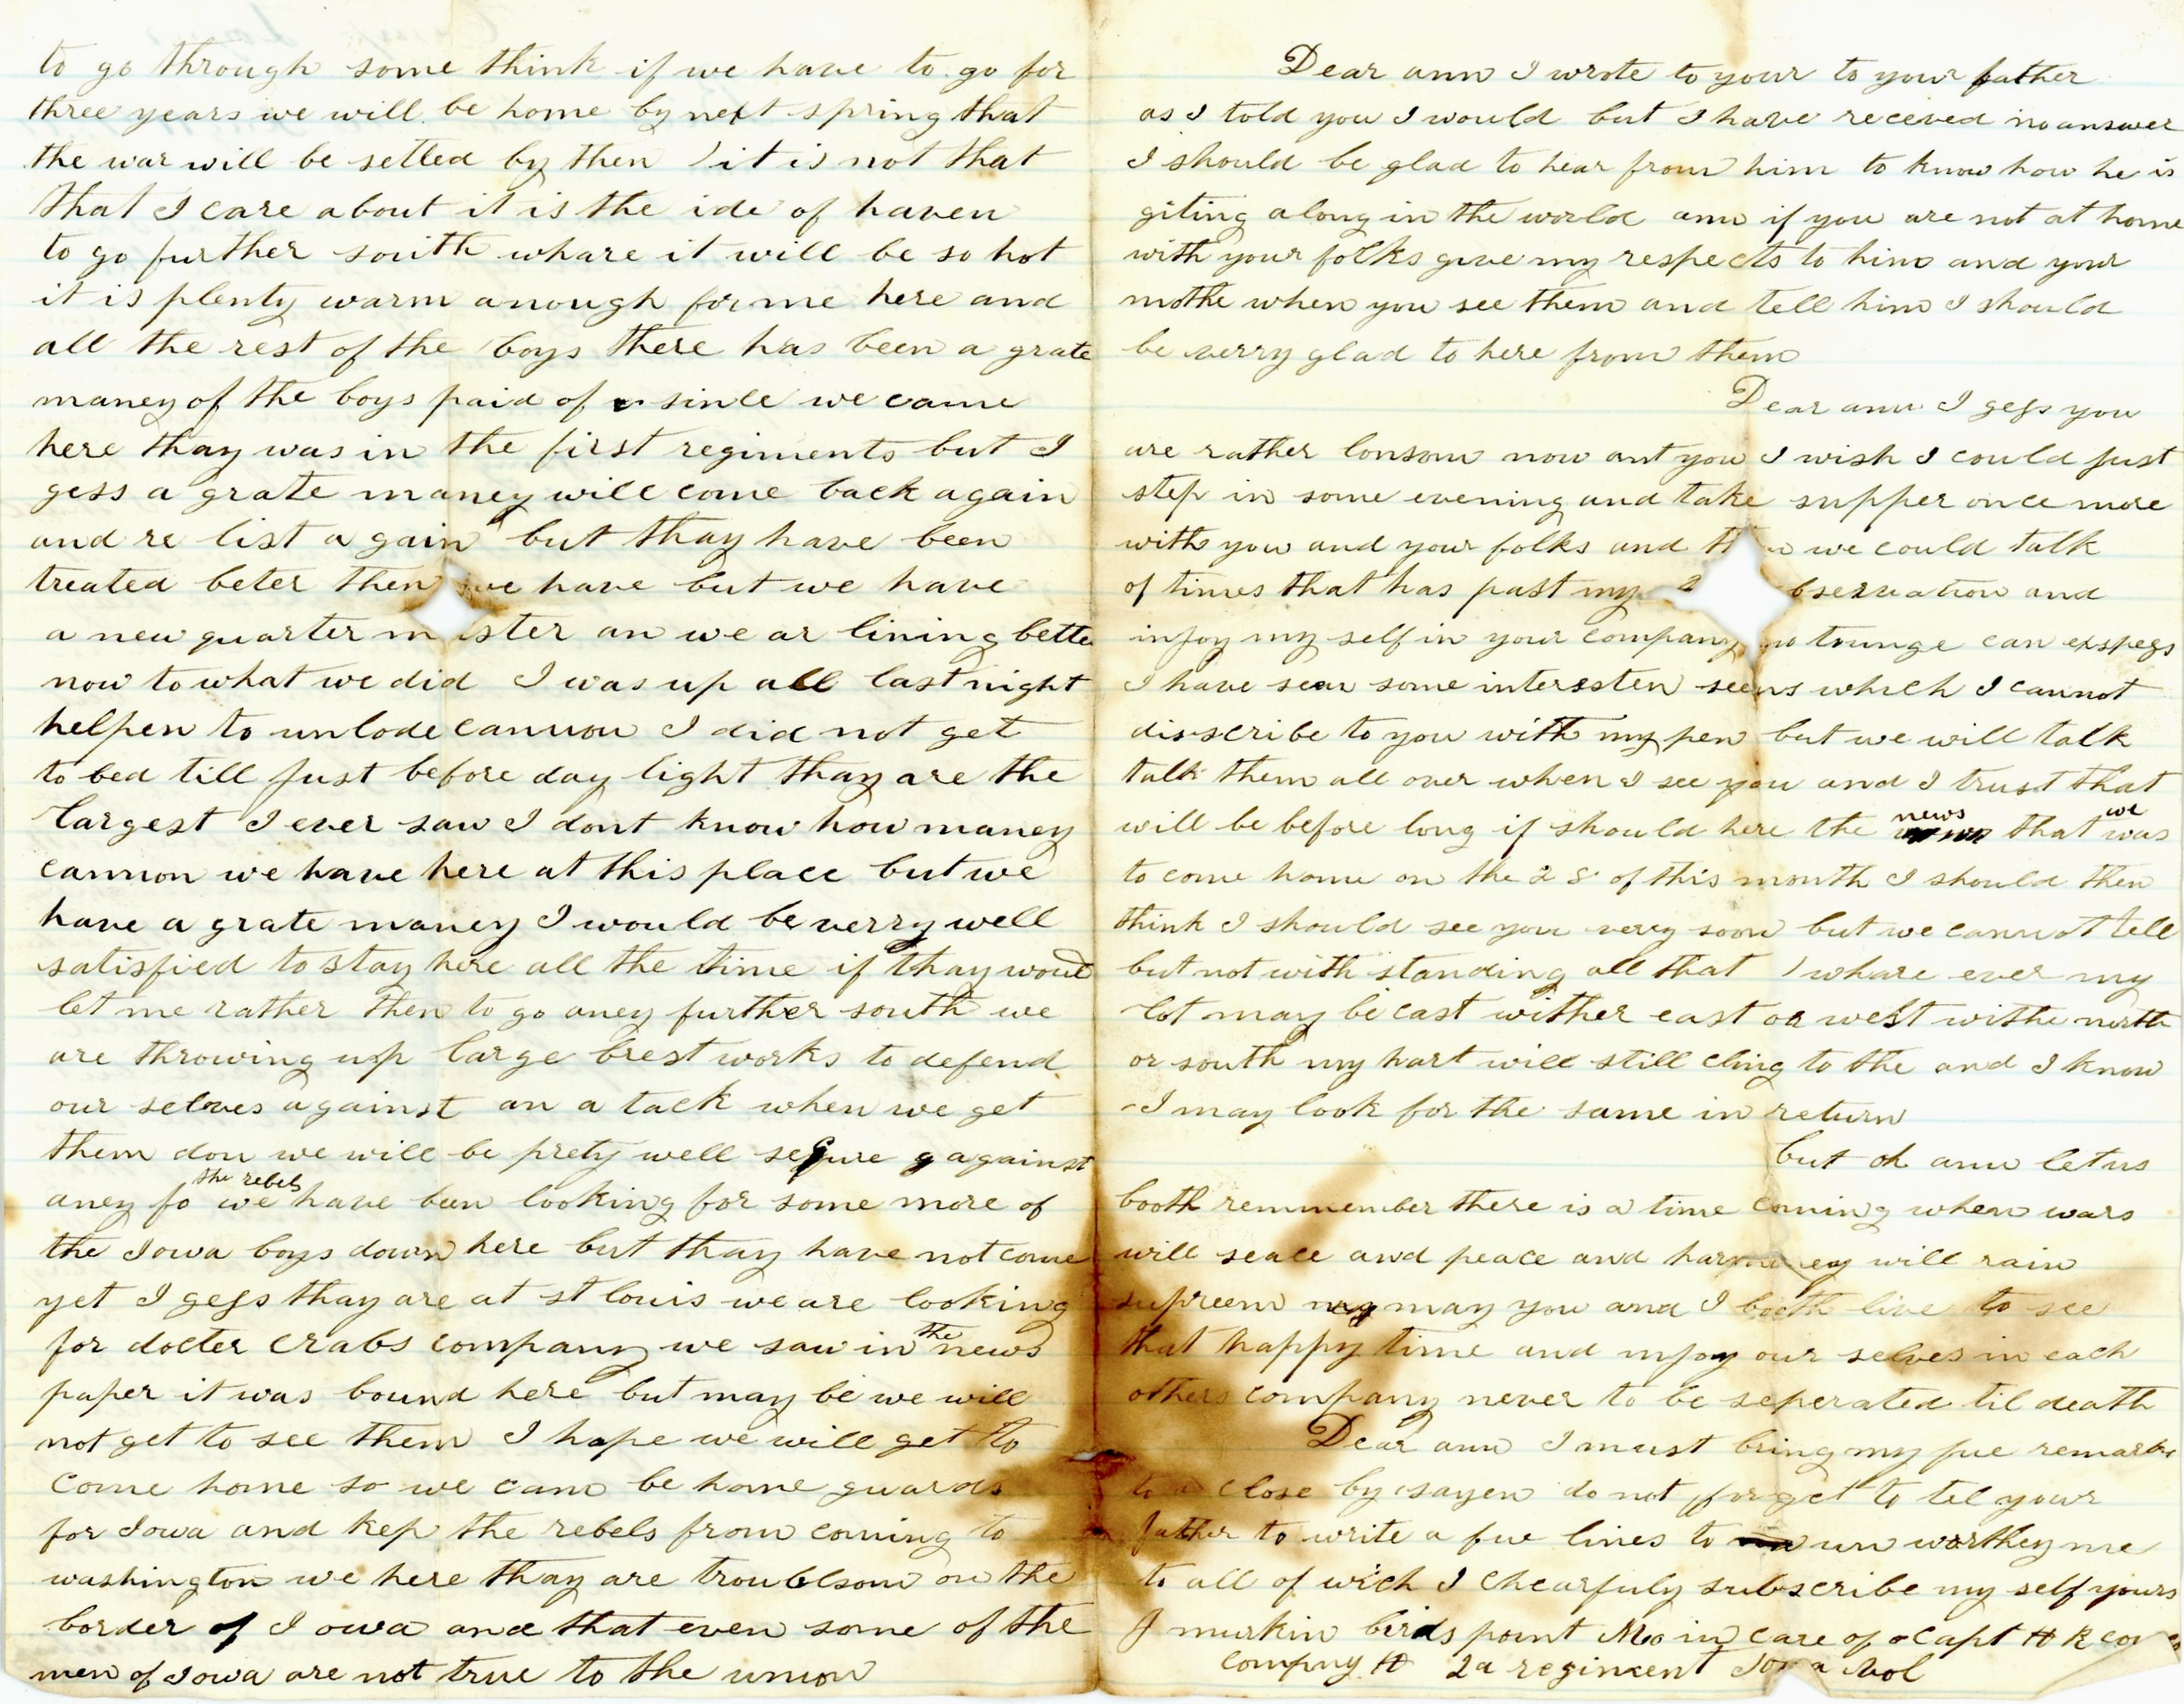 to go through some think if we have to go for
three years we will be home by next spring that
the war will be setled by then it is not that
that I care about it is the ide of haven
to go further south whare it will be so hot
it is plenty warm anough for me here and
all the rest of the boys there has been a grate
maney of the boys paid of sinle we came
here thay was in the first regiments but I
gess a grate maney will come back again
and re list again but thay have been
treated beter then we have but we have
a new quarter m ster an we ar lining bette
now to what we did I was up all last night
helpen to unlode cannon I did not get
to bed till just before day light thay are the
largest I ever saw I dont know how maney
cannon we have here at this place but we
have a grate maney I would be verry well
satisfied to stay here all the time if thay woud
let me rather then to go aney further south we
are throwing up large brest works to defend
our selves against an a tack when we get
them don we will be prety well sequre g against
aney fo the rebels we have ben looking for some more of
the Iowa boys down here but thay have not come
yet I gess thay are at st louis we are looking
for docter Crabs company we saw in the news
paper it was bound here but may be we will
not get to see them I hope we will get to
come home so we cann be home guards
for Iowa and kep the rebels from coming to
washington we here thay are troublsom on the
border of I owa and that even some of the
men of Iowa are not true to the union
Dear ann I wrote to your to your father
as I told you I would but I have receved no answer
I should be glad to hear from him to know how he is
giting along in the world ann if you are not at home
with your folks give my respects to him and your
mothe when you see them and tell him I should
be verry glad to here from them
Dear ann I gess you
are rather lonsom now ant you I wish I could just
step in some evening and take supper once more
with you and your folks and we could talk
of times that has past my bservation and
injoy my self in your company no tounge can exspess
I have sean some interssten seens which I cannot
disscribe to you with my pen but we will talk
talk them all over when I see you and I trust that
will be before long if should here the news that we was
to come home on the 28 of this month I should then
think I should see you very soon but we cannot tell
but not with standing all that whare ever my
lot may be cast wither east or west withe north
or south my hart will still cling to the and I know
I may look for the same in return
but oh ann let us
booth remmember there is a time coming when wars
will seace and peace and harmoney will rain
supreem may you and I booth live to see
that happy time and injoy our selves in each
others company never to be seperated til death
Dear ann I must bring my fue remarks
to a close by sayen do not forget to tel your
father to write a fue lines to un worthey me
to all of wich I chearfuly subscribe my self yours
J murkin birds point Mo in care of Capt H R
Compny H 2d regiment Iowa vol